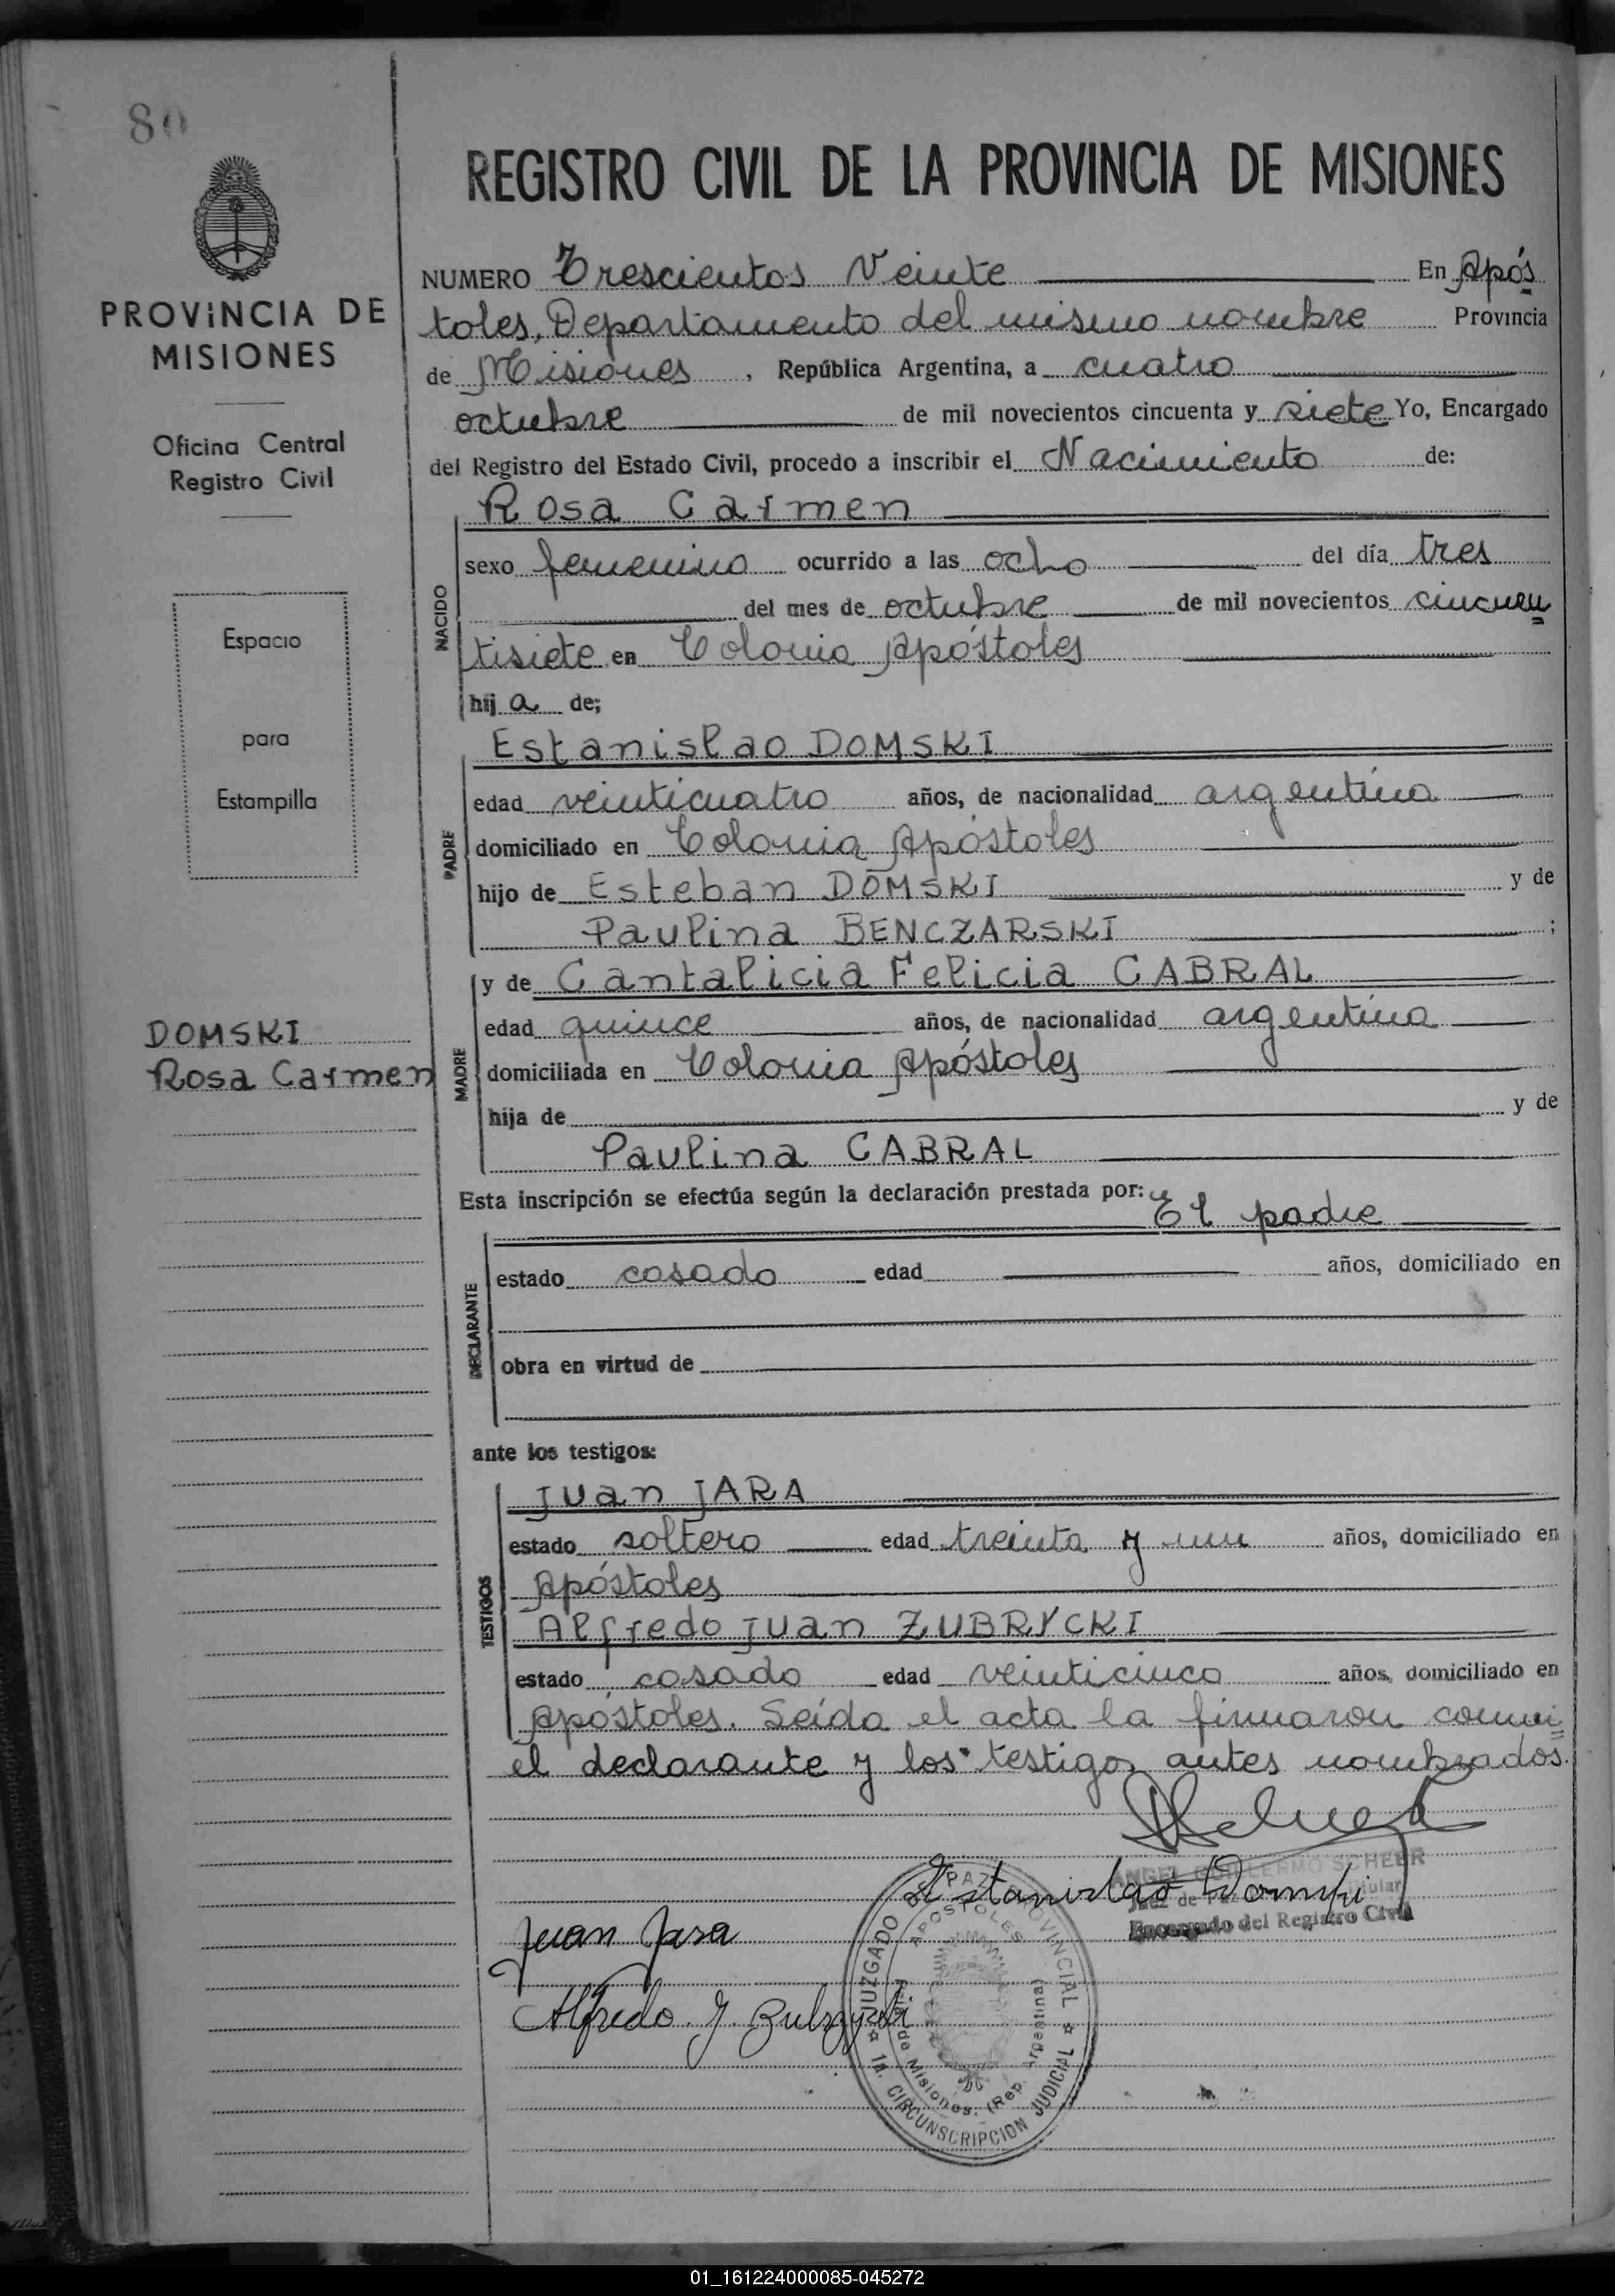 80
REGISTRO CIVIL DE LA PROVINCIA DE MISIONES
PROVINCIA DE
MISIONES
Oficina Central
Registro Civil
Espacio
para
Estampilla
DOMSKI
Rosa Carmen
NUMERO Trescientos Veinte En Após
toles, Departamento del mismo nombre Provincia
de Misiones, República Argentina, a cuatro
octubre de mil novecientos cincuenta y siete Yo, Encargado
del Registro del Estado Civil, procedo a inscribir el Nacimiento de:
Rosa Carmen
NACIDO
sexo femenino ocurrido a las ocho del día tres
del mes de octubre de mil novecientos cincuen
tisiete en Colonia Apóstoles
hija de;
Estanislao DOMSKI
PADRE
edad veinticuatro años, de nacionalidad argentina
domiciliado en Colonia Apóstoles
hijo de Esteban DOMSKI y de
Paulina BENCZARSKI;
MADRE
y de Cantalicia Felicia CABRAL
edad quince años, de nacionalidad argentina
domiciliada en Colonia Apóstoles
hija de y de
Paulina CABRAL
Esta inscripción se efectúa según la declaración prestada por: El padre
DECLARANTE
estado casado edad años, domiciliado en
obra en virtud de
ante los testigos:
TESTIGOS
Juan JARA
estado soltero edad treinta y un años, domiciliado en
Apóstoles
Alfredo Juan ZUBRYCKI
estado casado edad veinticinco años, domiciliado en
Apóstoles. Leída el acta la firmaron conmi
el declarante y los testigos antes nombrados.
Estanislao Domski
ANGEL GUILLERMO SCHEER
Juez de Paz Titular
Encargado del Registro Civil
Juan Jara
Alfredo J. Zubrycki
JUZGADO DE PAZ PROVINCIAL
APOSTOLES
de Misiones. (Rep. Argentina)
1a. CIRCUNSCRIPCION JUDICIAL
01_161224000085-045272